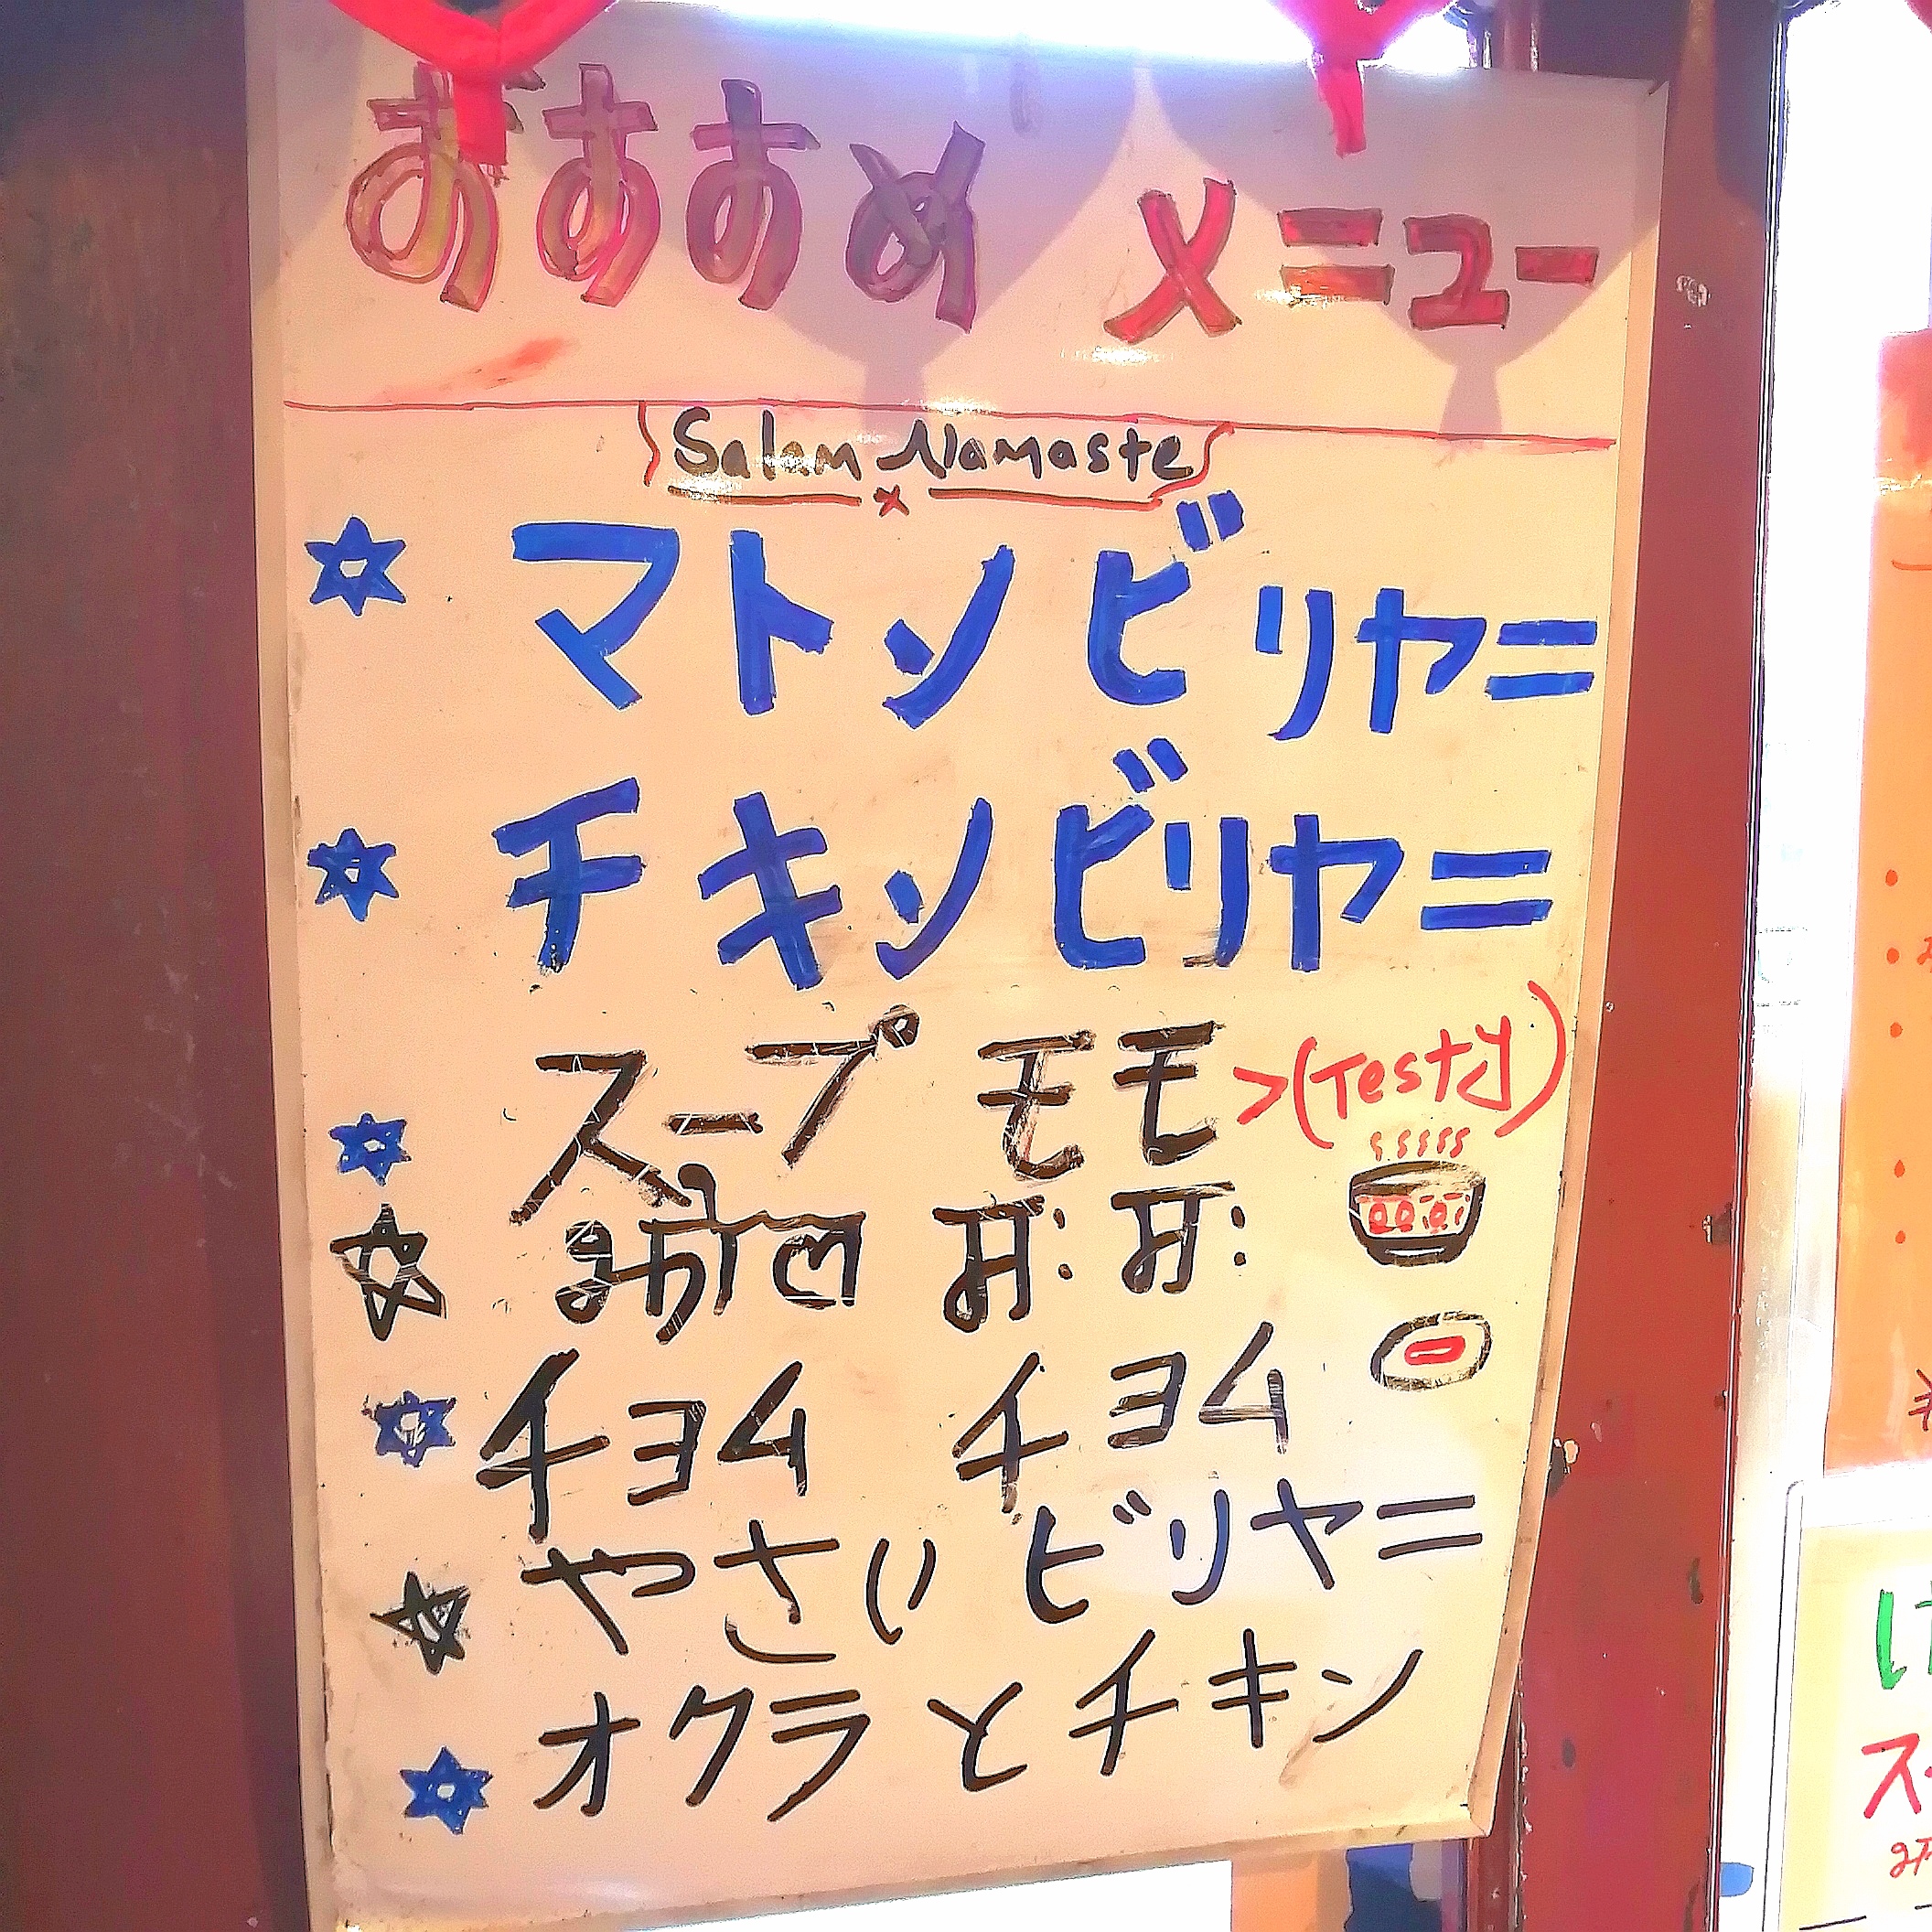 おすすめ メニュー
Salam Namaste
マトンビリヤニ
チキンビリヤニ
スープ モモ >(Testy)
झोल मः मः
チョム チョム
やさい ビリヤニ
オクラとチキン